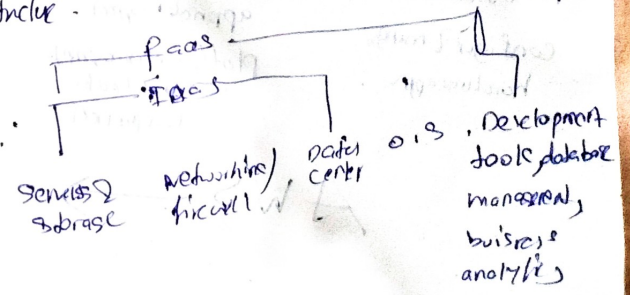 Inclue -
Paas
Iaas
Servers & storage
networking/ firewall.
Data center
O.S
, Development
tools, database
management,
buisness
analytics